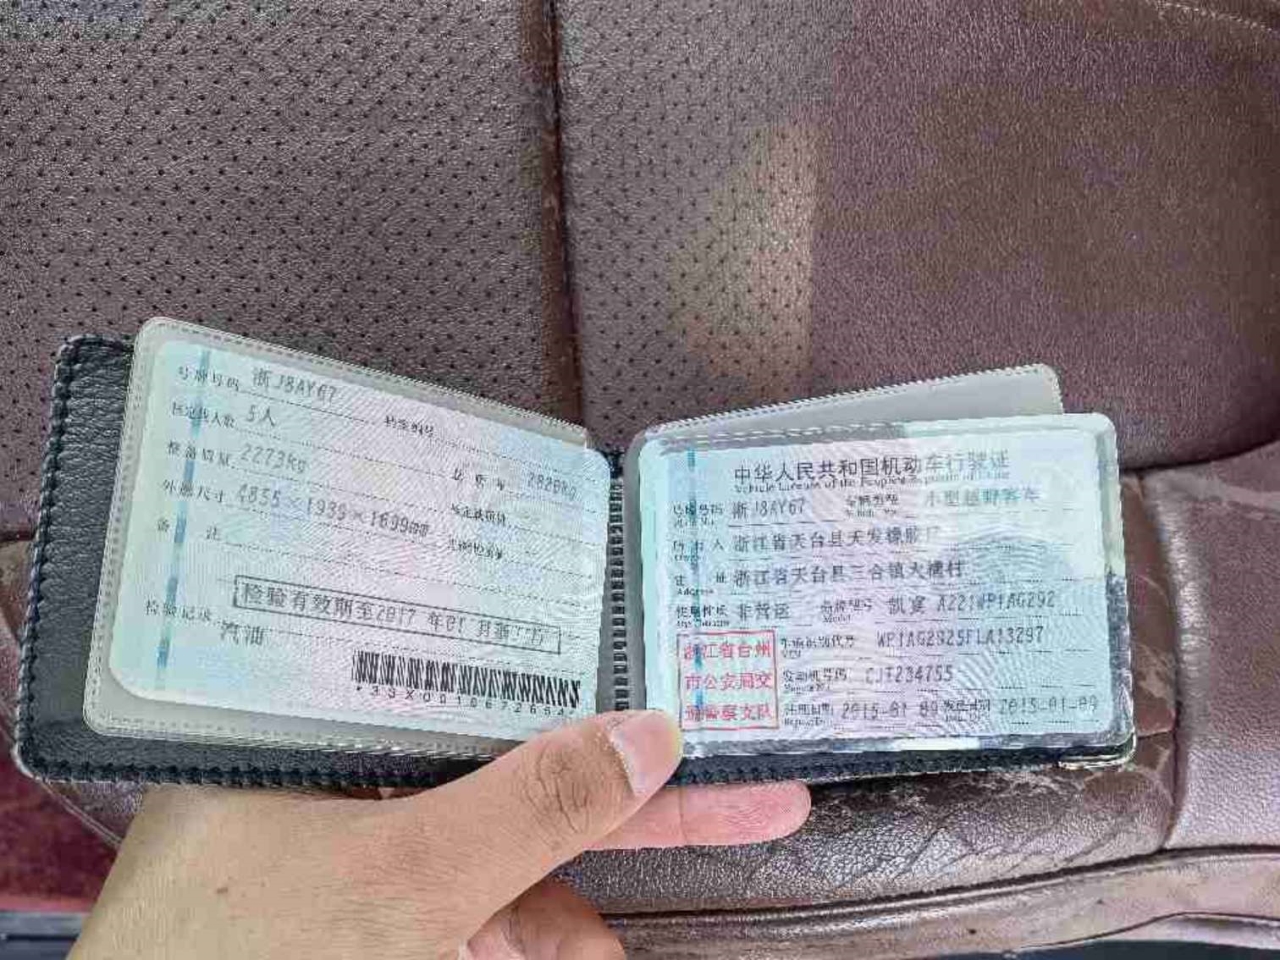 号牌号码 浙J8AY67 档案编号
核定载人数 5人 总质量 2820kg
整备质量 2273kg 核定载质量
外廓尺寸 4855×1939×1699mm
备 注
检验有效期至2017年01月浙J(01)
检验记录
汽油
中华人民共和国机动车行驶证
Vehicle License of the People's Republic of China
号牌号码 浙J8AY67 车辆类型 小型越野客车
所有人 浙江省天台县天发橡胶厂
住址 浙江省天台县三合镇大横村
Address
使用性质 非营运 品牌型号 凯宴 A221WP1AG292
浙江省台州
市公安局交
通警察支队
车辆识别代号 WP1AG2925FLA13297
VIN
发动机号码 CJT234755
Engine No.
注册日期 2015-01-09 发证日期 2015-01-09